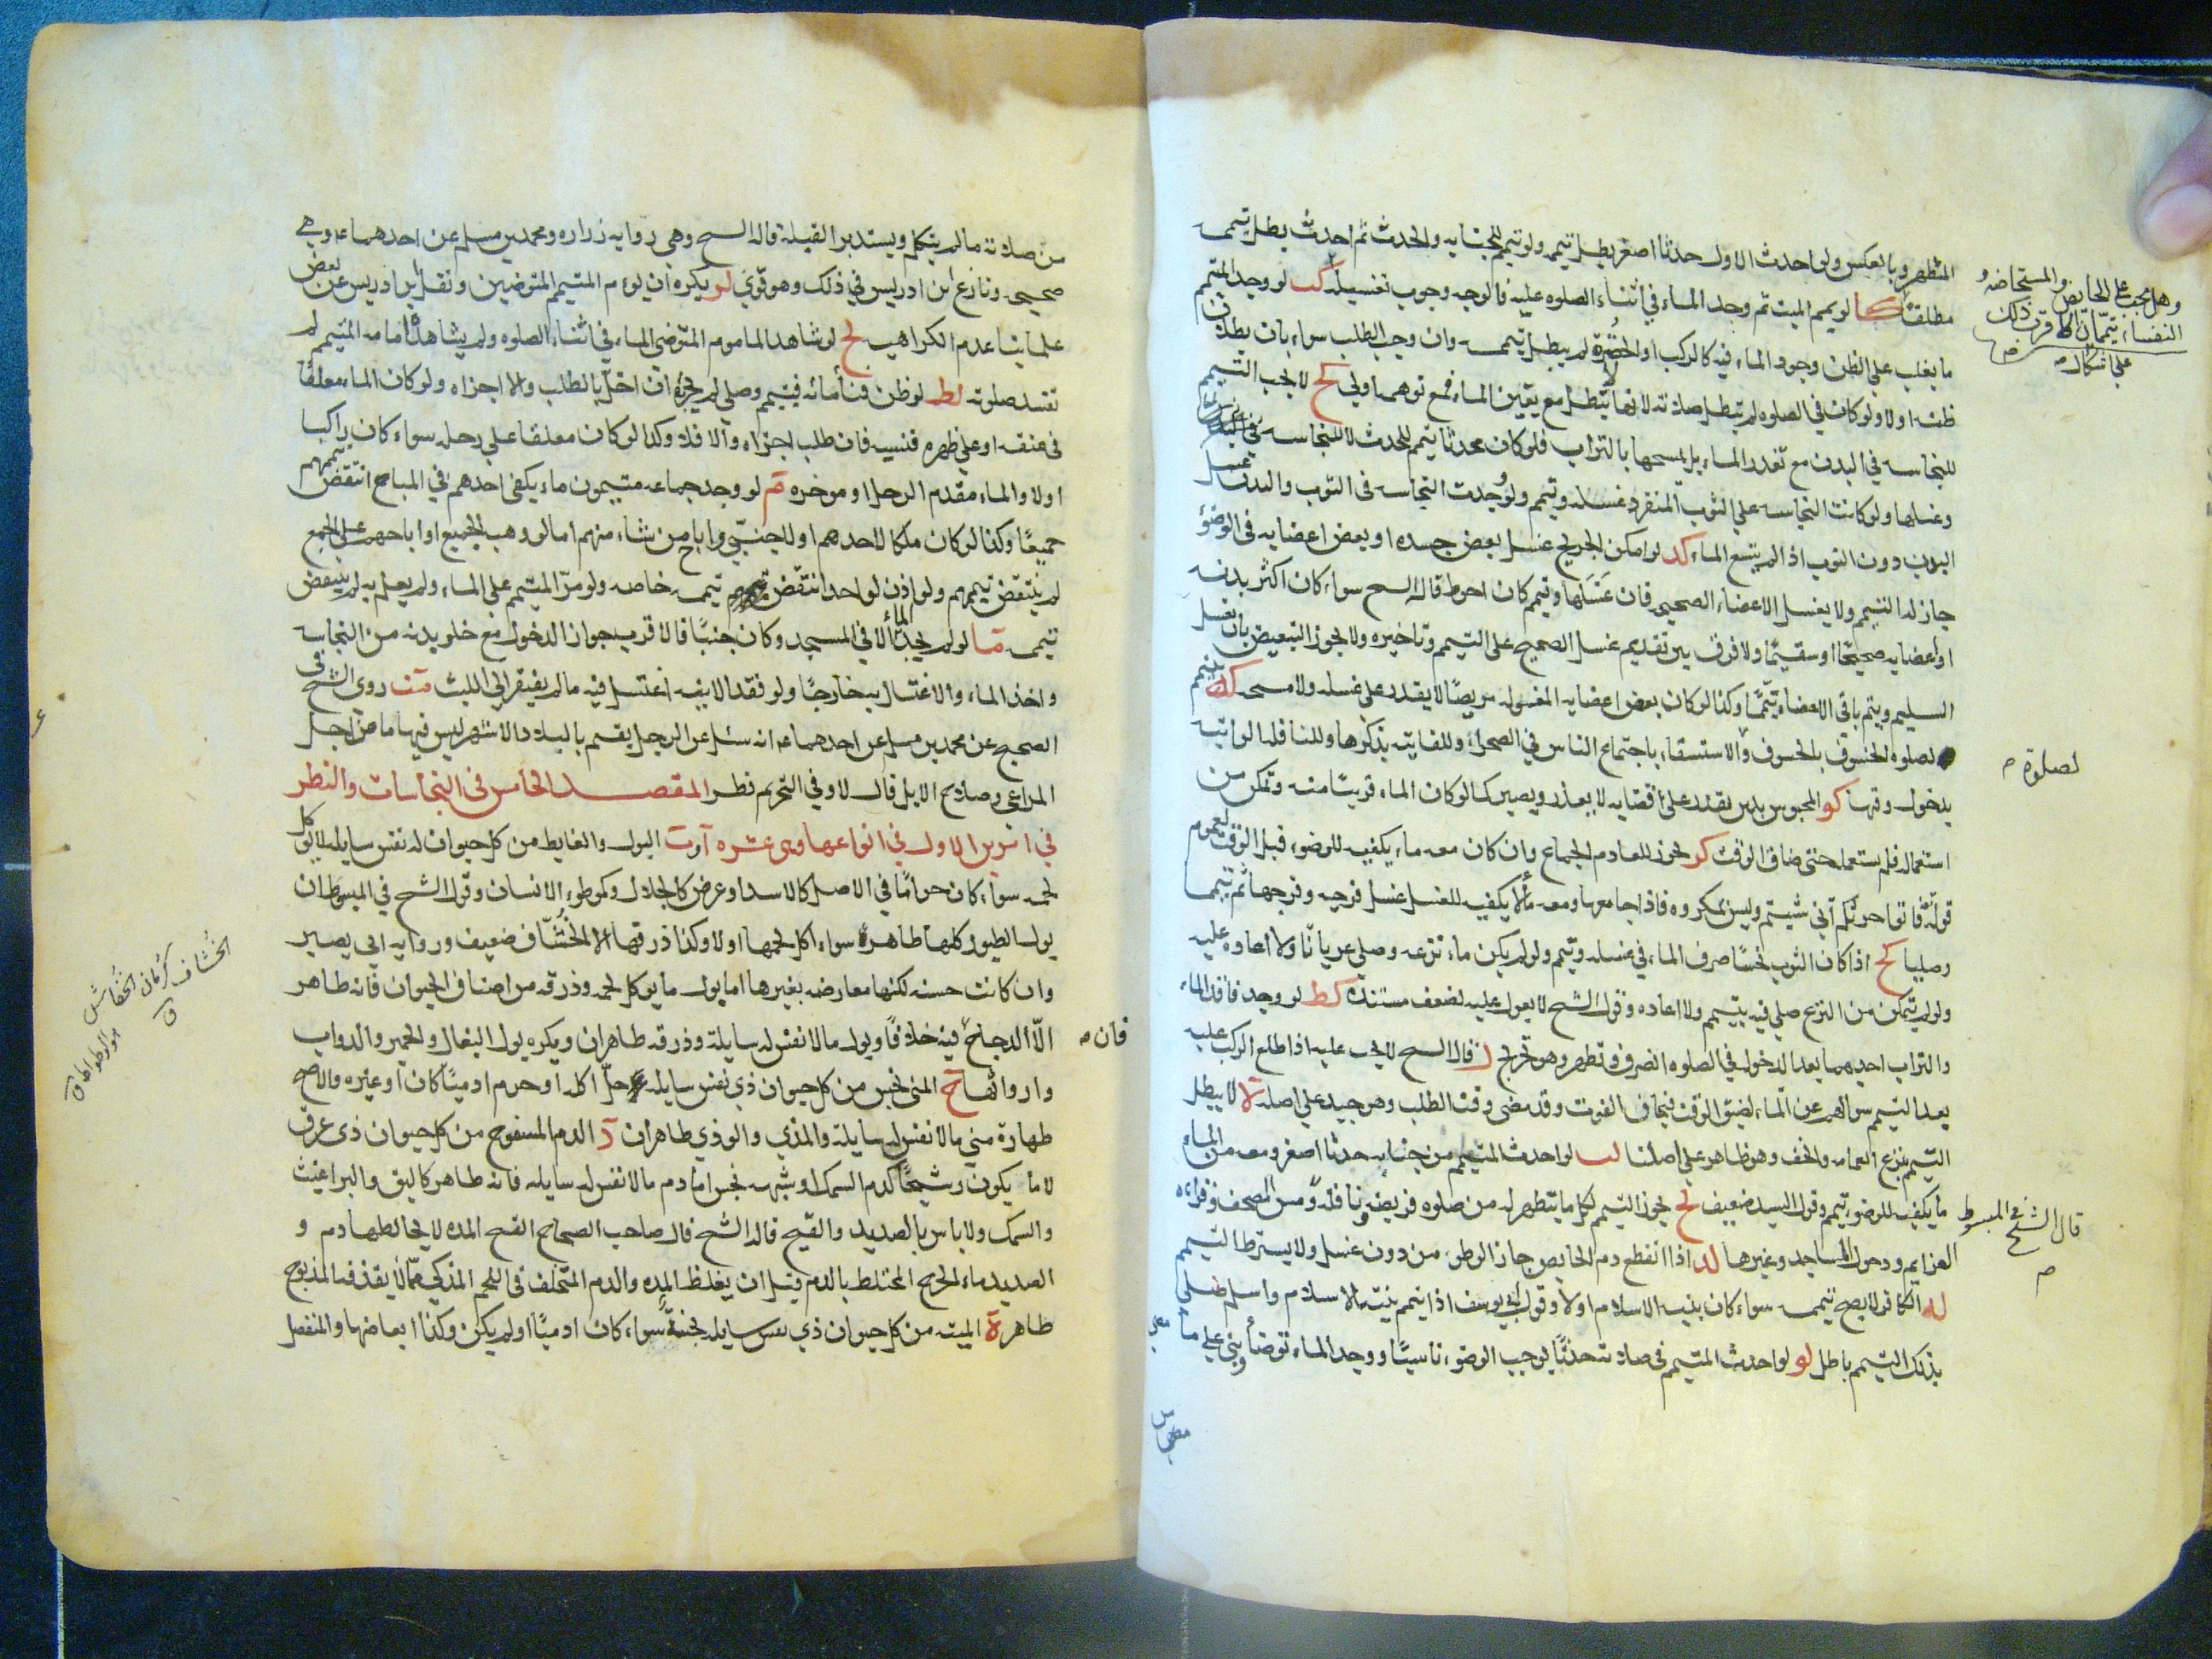 المتطهر وبالعكس ولو احدث الاول حدثا اصغر بطل تيممه ولو تيمم للجنابه والحدث ثم احدث بطل تيممه
مطلقا كا لو يمم الميت ثم وجد الماء في اثناء الصلوه عليه فالوجه وجوب تغسيله كب لو وجد المتيمم
ما يغلب على الظن وجود الماء فيه كالركب او الخضرة لم يبطل تيممه وان وجب الطلب سواء بان بطلان
ظنه اولا ولو كان في الصلوه لم تبطل صلاته لانها لا تبطل مع تعين الماء فمع توهمه اولى كج لا يجب التيمم
للنجاسه في البدن مع تعذر الماء بل يمسحها بالتراب فلو كان محدثا يتمم للحدث لا للنجاسه
وغسلها ولو كانت النجاسه على الثوب المنفرد غسله وتيمم ولو وجدت النجاسه في الثوب والبدن غسل
البدن دون الثوب اذا لم يتسع الماء كد لو امكن الجريح غسل بعض جسده او بعض اعضايه في الوضوء
جاز له التيمم ولا يغسل الاعضاء الصحيحه فان غسلها وتيمم كان احوط قاله الشيخ سواء كان اكثر بدنه
او اعضايه صحيحًا او سقيمًا ولا فرق بين تقديم غسل الصحيح على التيمم وتاخيره ولا يجوز التبعيض بان يغسل
السليم ويتم باقي الاعضاء تيممًا وكذا لو كان بعض اعضايه المغسوله مريضًا لا يقدر على غسله ولا مسحه كه يتيمم
لصلوه الخسوف بالخسوف والاستسقاء باجتماع الناس في الصحراء وللفايته بذكرها وللنافله الراتبه
بدخول وقتها كو المحبوس بدين يقدر على قضايه لا يعذر ويصير كما لو كان الماء قريبًا منه وتمكن من
استعماله فلم يستعمله حتى ضاق الوقت كز يجوز للعادم الجماع وان كان معه ماء يكفيه للوضوء قبل الوقت لعموم
قوله فاتوا حرثكم انى شيتم وليس بمكروه فاذا جامعها ومعه ما لا يكفيه للغسل غسل فرجه وفرجها ثم تيمما
وصليا كح اذا كان الثوب نجسًا صرف الماء في غسله وتيمم ولو لم يكن ماء نزعه وصلى عريانًا ولا اعاده عليه
ولو لم يتمكن من النزع صلى فيه بتيمم ولا اعاده وقول الشيخ لا يعول عليه لضعف مستنده كط لو وجد فاقد الماء
والتراب احدهما بعد الدخول في الصلوه انصرف وتطهر وهو تخريج ل قال الشيخ لا يجب عليه اذا طلع الركب عليه
بعد التيمم سوالهم عن الماء لضيق الوقت فيخاف الفوت وقد مضى وقت الطلب وهو جيد على اصله لا لا يبطل
التيمم بنزع العمامه والخف وهو ظاهر على اصلنا لب لو احدث المتيمم من جنابه حدثا اصغر ومعه من الماء
ما يكفيه للوضوء تيمم وقول السيد ضعيف لج يجوز التيمم لكل ما يتطهر له من صلوه فريضه ونافله ومس المصحف وقراءه
العزايم ودخول المساجد وغيرها لد اذا انقطع دم الحايض جاز الوطوء من دون غسل ولا يشترط التيمم
له الكافر لا يصح تيممه سواء كان بنيه الاسلام اولا وقول ابي يوسف اذا تيمم بنية الاسلام واسلم صلى
بذلك التيمم باطل لو لو احدث المتيمم في صلاته حدثًا يوجب الوضوء ناسيًا ووجد الماء توضأ وبنى على ما
وهل يجب على الحايض والمستحاضه و
النفساء تيممان الاقرب ذلك
على اشكال
لصلوة
قال الشيخ في المبسوط
من صلاته ما لم يتكلم ويستدبر القبلة قاله الشيخ وهي روايه زراره ومحمد بن مسلم عن احدهما ع وهي
صحيحه ونازع ابن ادريس في ذلك وهو قوي لز يكره ان يوم المتيمم المتوضين ونقل ابن ادريس عن بعض
علماينا عدم الكراهيه لح لو شاهد الماموم المتوضي الماء في اثناء الصلوه ولم يشاهده امامه المتيمم لم
تفسد صلوته لط لو ظن فناء مائه فتيمم وصلى لم يجزه ان اخل بالطلب والا اجزاه ولو كان الماء معلقا
في عنقه او على ظهره فنسيه فان طلب اجزاه والا فلا وكذا لو كان معلقا على رحله سواء كان راكبا
اولا والماء مقدم الرحل او موخره م لو وجد جماعه متيممون ماء يكفي احدهم في المباح انتقض تيممهم
جميعًا وكذا لو كان ملكا لاحدهم او لاجنبي واباح من شاء منهم اما لو وهب الجميع او اباحهم على الجمع
لم ينتقض تيممهم ولو اذن لواحد انتقض تيممه خاصه ولو مر المتيمم على الماء ولم يعلم به لم ينتقض
تيممه ما لو لم يجد الماء الا في المسجد وكان جنبًا فالاقرب جواز الدخول مع خلو بدنه من النجاسه
واخذ الماء والاغتسال به خارجًا ولو فقد الانيه اغتسل فيه ما لم يفتقر الى اللبث مب روى الشيخ في
الصحيح عن محمد بن مسلم عن احدهما ع انه سئل عن الرجل يقيم بالبلاد الاشهر ليس فيها ماء من اجل
المراعي وصلاح الابل قال لا وفي التحريم نظر المقصد الخامس في النجاسات والنظر
في امرين الاول في انواعها وهي عشره آ وب البول والغايط من كل حيوان له نفس سايله لا يوكل
لحمه سواء كان حرامًا في الاصل كالاسد او عرض كالجلال وكموطوء الانسان وقول الشيخ في المبسوط ان
بول الطيور كلها طاهرة سواء اكل لحمها اولا وكذا ذرقها الا الخشاف ضعيف وروايه ابي بصير
وان كانت حسنه لكنها معارضه بغيرها اما بول ما يوكل لحمه وذرقه من اصناف الحيوان فانه طاهر
الا الدجاج فيه خلافًا وبول ما لا نفس له سايلة وذرقه طاهران ويكره بول البغال والحمير والدواب
وارواثها ج المني نجس من كل حيوان ذي نفس سايله حل اكله او حرم ادميًا كان او غيره والاصح
طهارة مني ما لا نفس له سايلة والمذي والوذي طاهران د الدم المسفوح من كل حيوان ذي عرق
لا ما يكون رشيحًا كدم السمك او شبهه نجس اما دم ما لا نفس له سايله فانه طاهر كالبق والبراغيث
والسمك ولا باس بالصديد والقيح قاله الشيخ قال صاحب الصحاح القيح المده لا يخالطها دم و
الصديد ماء الجرح المختلط بالدم قبل ان يغلظ المده والدم المتخلف في اللحم المذكى مما لا يقذفه المذبوح
طاهر ه الميته من كل حيوان ذي نفس سايله نجسة سواء كان ادميًا او لم يكن وكذا ابعاضها والمنفصل
فان
الخشاف كرمان الخفاش
ق